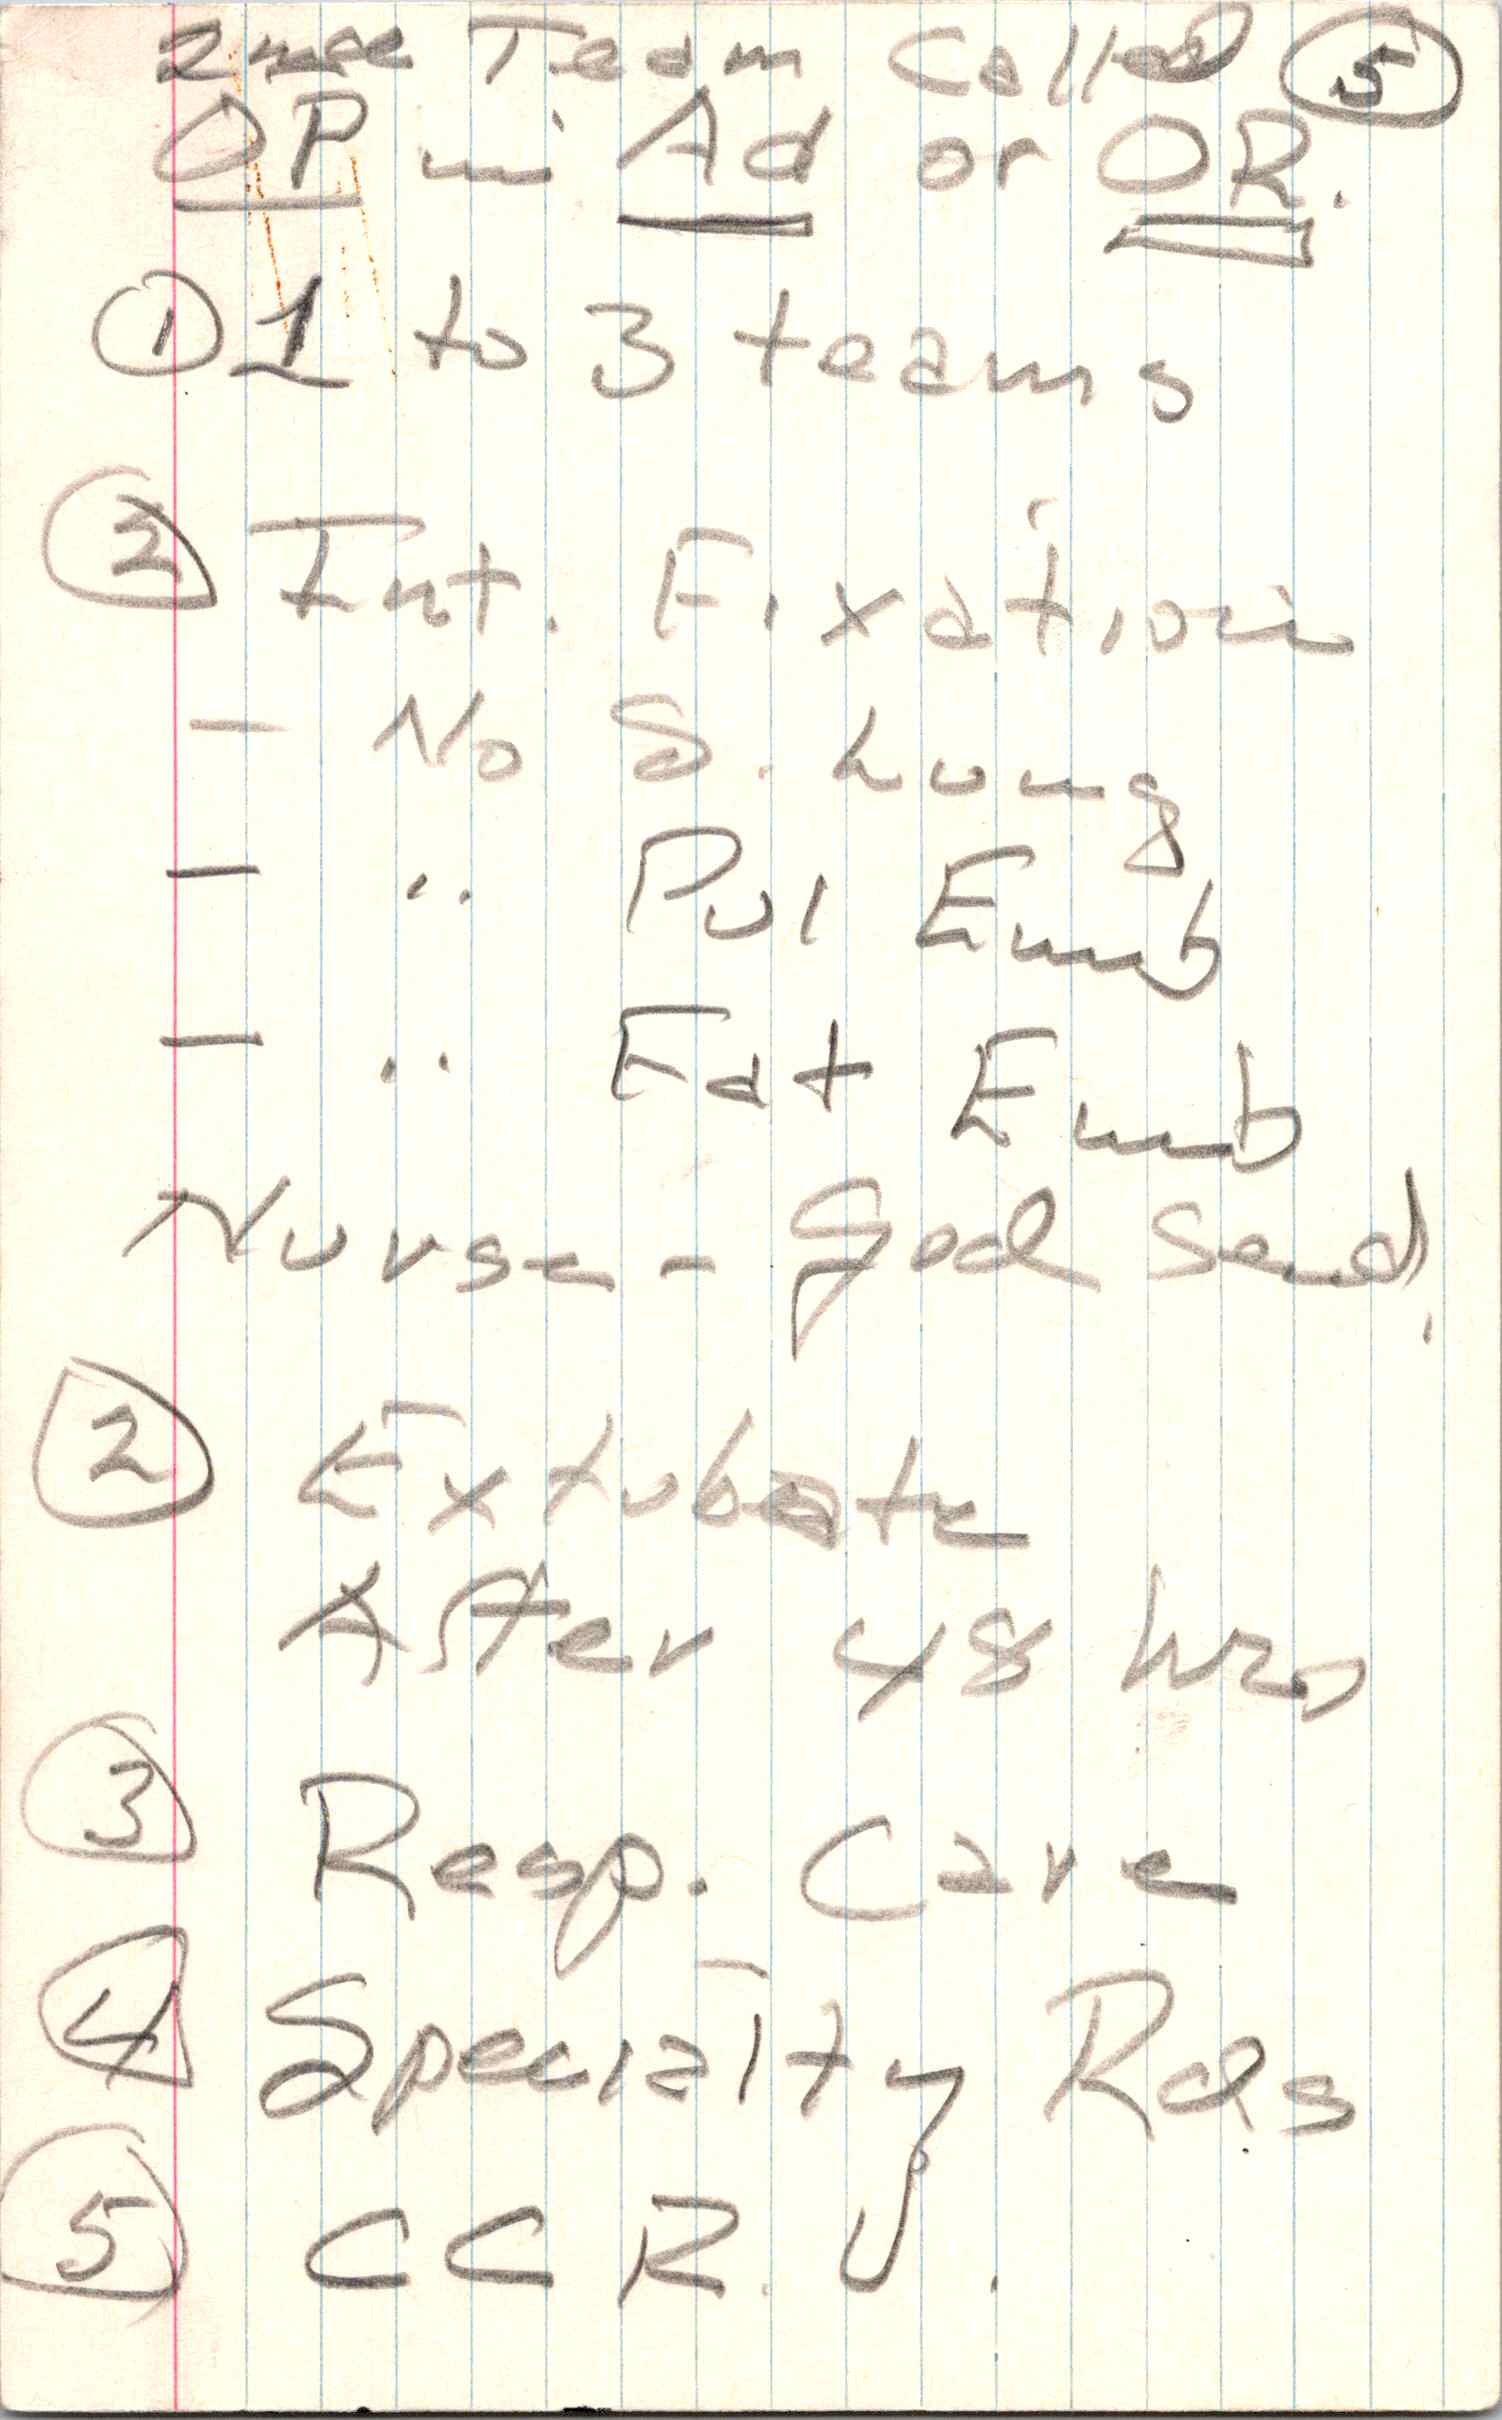 Team Called ⑤
OP in Ad or OR.
① 1 to 3 teams
② Int. Fixation
- No S. Lung
- " Pul Emb
- " Fat Emb
Nurse - God Send.
② Extubate
After 48 hrs
③ Resp. Care
④ Specialty Rds
⑤ CCR.U.